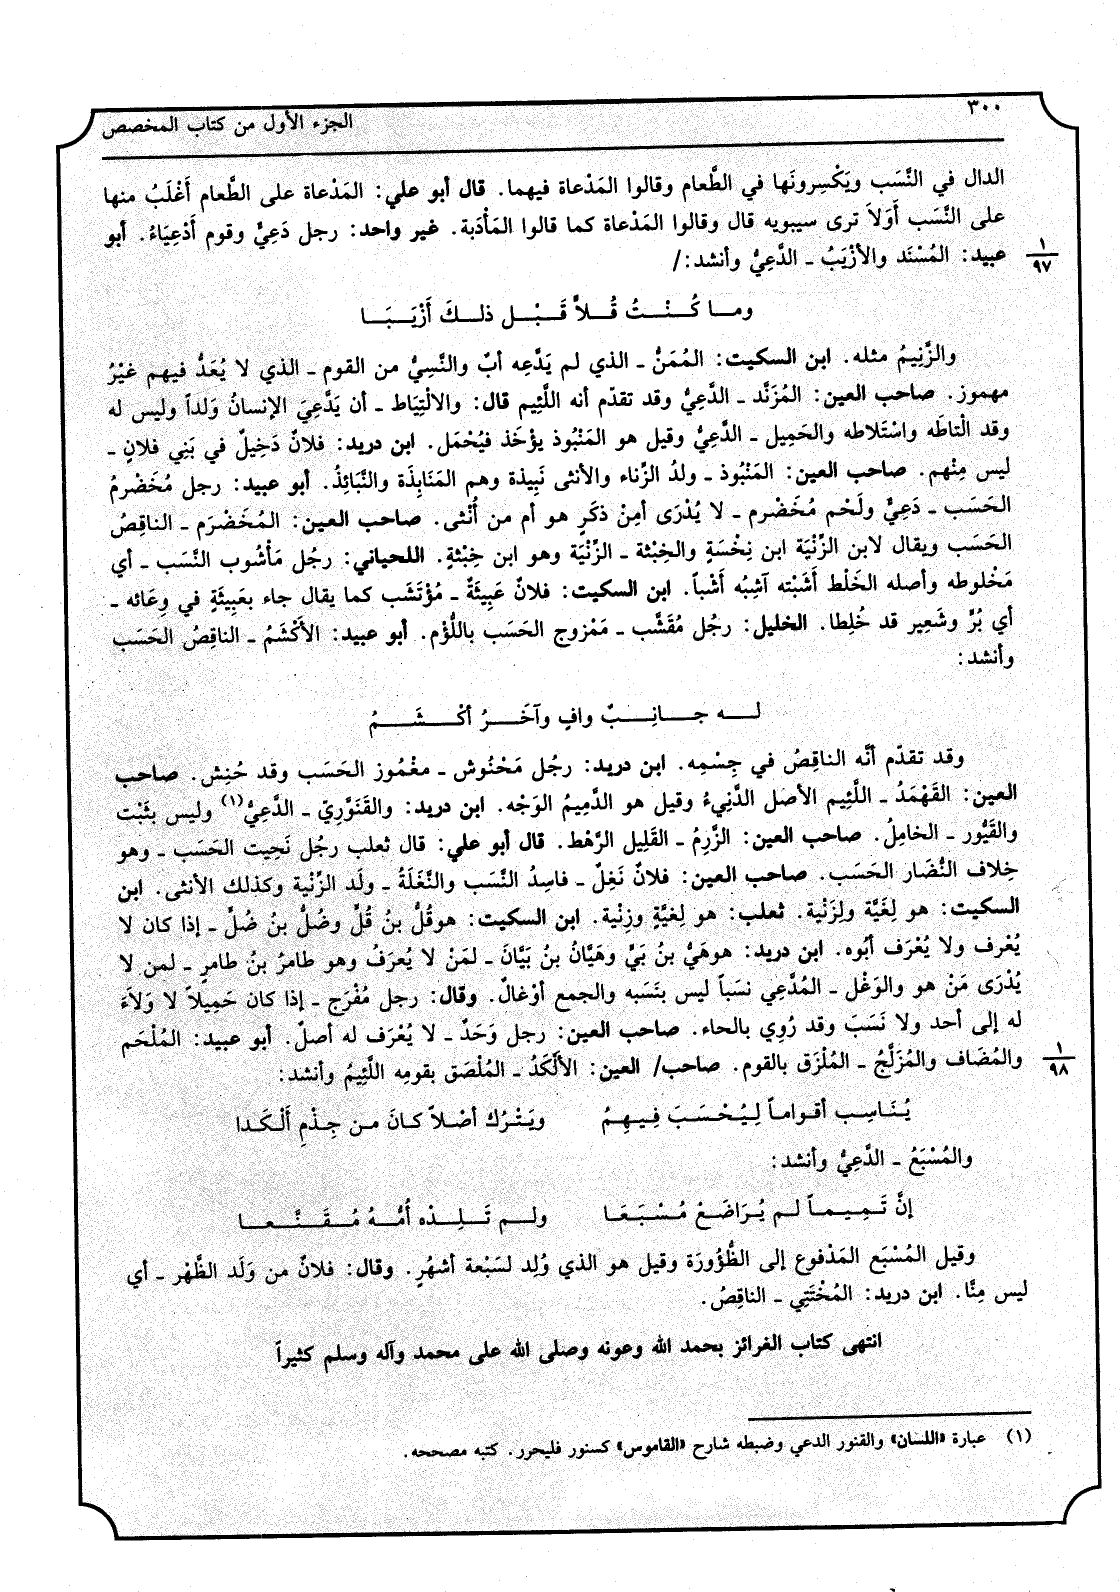 ٣٠٠
الجزء الأول من كتاب المخصص
الدال في النَّسَب ويَكْسِرونَها في الطَّعام وقالوا المَدْعاة فيهما. قال أبو علي: المَدْعاة على الطَّعام أَغْلَبُ منها
على النَّسَب أَوَلاَ ترى سيبويه قال وقالوا المَدْعاة كما قالوا المَأْدَبة. غير واحد: رجل دَعِيٌّ وقوم أَدْعِيَاءُ. أبو
عبيد: المُسْنَد والأَزْيَبُ ـ الدَّعِيُّ وأنشد:/
١
٩٧
ومـا كُـنْـتُ قُـلاًّ قَـبْـل ذلـكَ أَزْيَـبَـا
والزَّنِيمُ مثله. ابن السكيت: المُمَنُّ ـ الذي لم يَدَّعِه أبٌ والنَّسِيُّ من القوم ـ الذي لا يُعَدُّ فيهم غيْرُ
مهموز. صاحب العين: المُزَنَّد ـ الدَّعِيُّ وقد تقدّم أنه اللَّئِيم قال: والالْتِيَاط ـ أن يَدَّعِيَ الإنسانُ وَلداً وليس له
وقد الْتاطَه واسْتَلاطه والحَمِيل ـ الدَّعِيُّ وقيل هو المَنْبُوذ يؤْخَذ فيُحْمَل. ابن دريد: فلانٌ دَخِيلٌ في بَنِي فلانٍ ـ
ليس مِنْهم. صاحب العين: المَنْبُوذ ـ ولدُ الزِّناء والأنثى نَبِيذة وهم المَنَابِذة والنَّبَائِذُ. أبو عبيد: رجل مُخَضْرمُ
الحَسَب ـ دَعِيٌّ ولَحْم مُخَضْرم ـ لا يُدْرَى أمِنْ ذكَرٍ هو أم من أُنْثى. صاحب العين: المُخَضْرَم ـ الناقِصُ
الحَسَب ويقال لابن الزِّنْيَة ابن نِخْسَةٍ والخِبْثة ـ الزِّنْيَة وهو ابن خِبْثةٍ. اللحياني: رجُل مَأْشُوب النَّسَب ـ أي
مَخْلوطه وأصله الخَلْط أَشَبْته آشِبُه أَشْباً. ابن السكيت: فلانٌ عَبِيثَةٌ ـ مُؤْتَشَب كما يقال جاء بعَبِيثَةٍ في وِعَائه ـ
أي بُرٍّ وشَعِير قد خُلِطا. الخليل: رجُل مُقَشَّب ـ مَمْزوج الحَسَب باللُّؤْم. أبو عبيد: الأَكْشَمُ ـ الناقِصُ الحَسَب
وأنشد:
لـه جـانِـبٌ وافٍ وآخَـرُ أكْـشَـمُ
وقد تقدّم أنَّه الناقِصُ في جِسْمِه. ابن دريد: رجُل مَحْنُوش ـ مغْموز الحَسَب وقد حُنِش. صاحب
العين: القَهْمَدُ ـ اللَّئِيم الأصل الدَّنِيءُ وقيل هو الدَّمِيمُ الوَجْه. ابن دريد: والقَنَوَّرِيّ ـ الدَّعِيُّ(١) وليس بثَبْت
والقَيُّور ـ الخامِلُ. صاحب العين: الزَّرِمُ ـ القَلِيل الرَّهْط. قال أبو علي: قال ثعلب رجُل نَحِيت الحَسَب ـ وهو
خِلاف النُّضَار الحَسَب. صاحب العين: فلانٌ نَغِلٌ ـ فاسِدُ النَّسَب والنَّغْلَةُ ـ ولَد الزِّنْية وكذلك الأنثى. ابن
السكيت: هو لِغَيَّة ولِزَنْية. ثعلب: هو لِغيَّةٍ وزِنْية. ابن السكيت: هوقُلُّ بنُ قُلٍّ وضُلُّ بنُ ضُلٍّ ـ إذا كان لا
يُعْرف ولا يُعْرَف أبُوه. ابن دريد: هوهَيُّ بنُ بَيٍّ وهَيَّانُ بنُ بَيَّانَ ـ لمَنْ لا يُعرَفُ وهو طامرُ بنُ طامرٍ ـ لمن لا
يُدْرَى مَنْ هو والوَغْل ـ المُدَّعِي نسَباً ليس بنَسَبه والجمع أوْغالٌ. وقال: رجل مُفْرَج ـ إذا كان حَمِيلاً لا وَلاَءَ
له إلى أحد ولا نَسَبَ وقد رُوِي بالحاء. صاحب العين: رجل وَحَدٌ ـ لا يُعْرَف له أصلٌ. أبو عبيد: المُلْحَم
والمُضَاف والمُزَلَّجُ ـ المُلْزَق بالقوم. صاحب/ العين: الأَلْكَدُ ـ المُلْصَق بقومِه اللَّئِيمُ وأنشد:
١
٩٨
يُـنَـاسِـب أقْـوامـاً لِـيُـحْـسَـبَ فِـيـهِـمُ ويَـتْـرُك أصْـلاً كـانَ مـن جِـذْمِ أَلْـكَـدا
والمُسْبَعُ ـ الدَّعِيُّ وأنشد:
إنَّ تَـمِـيـمـاً لـم يُـرَاضَـعْ مُـسْـبَـعَـا ولـم تَـلِـدْه أُمُّـهُ مُـقَـنَّـعـا
وقيل المُسْبَع المَدْفوع إلى الظُّؤُورَة وقيل هو الذي وُلِد لسَبْعة أشهُرٍ. وقال: فلانٌ من وَلَد الظَّهْر ـ أي
ليس مِنَّا. ابن دريد: المُخْتَتِي ـ الناقِصُ.
انتهى كتاب الغرائز بحمد الله وعونه وصلى الله على محمد وآله وسلم كثيراً
(١) عبارة «اللسان» والقنور الدعي وضبطه شارح «القاموس» كسنور فليحرر. كتبه مصححه.